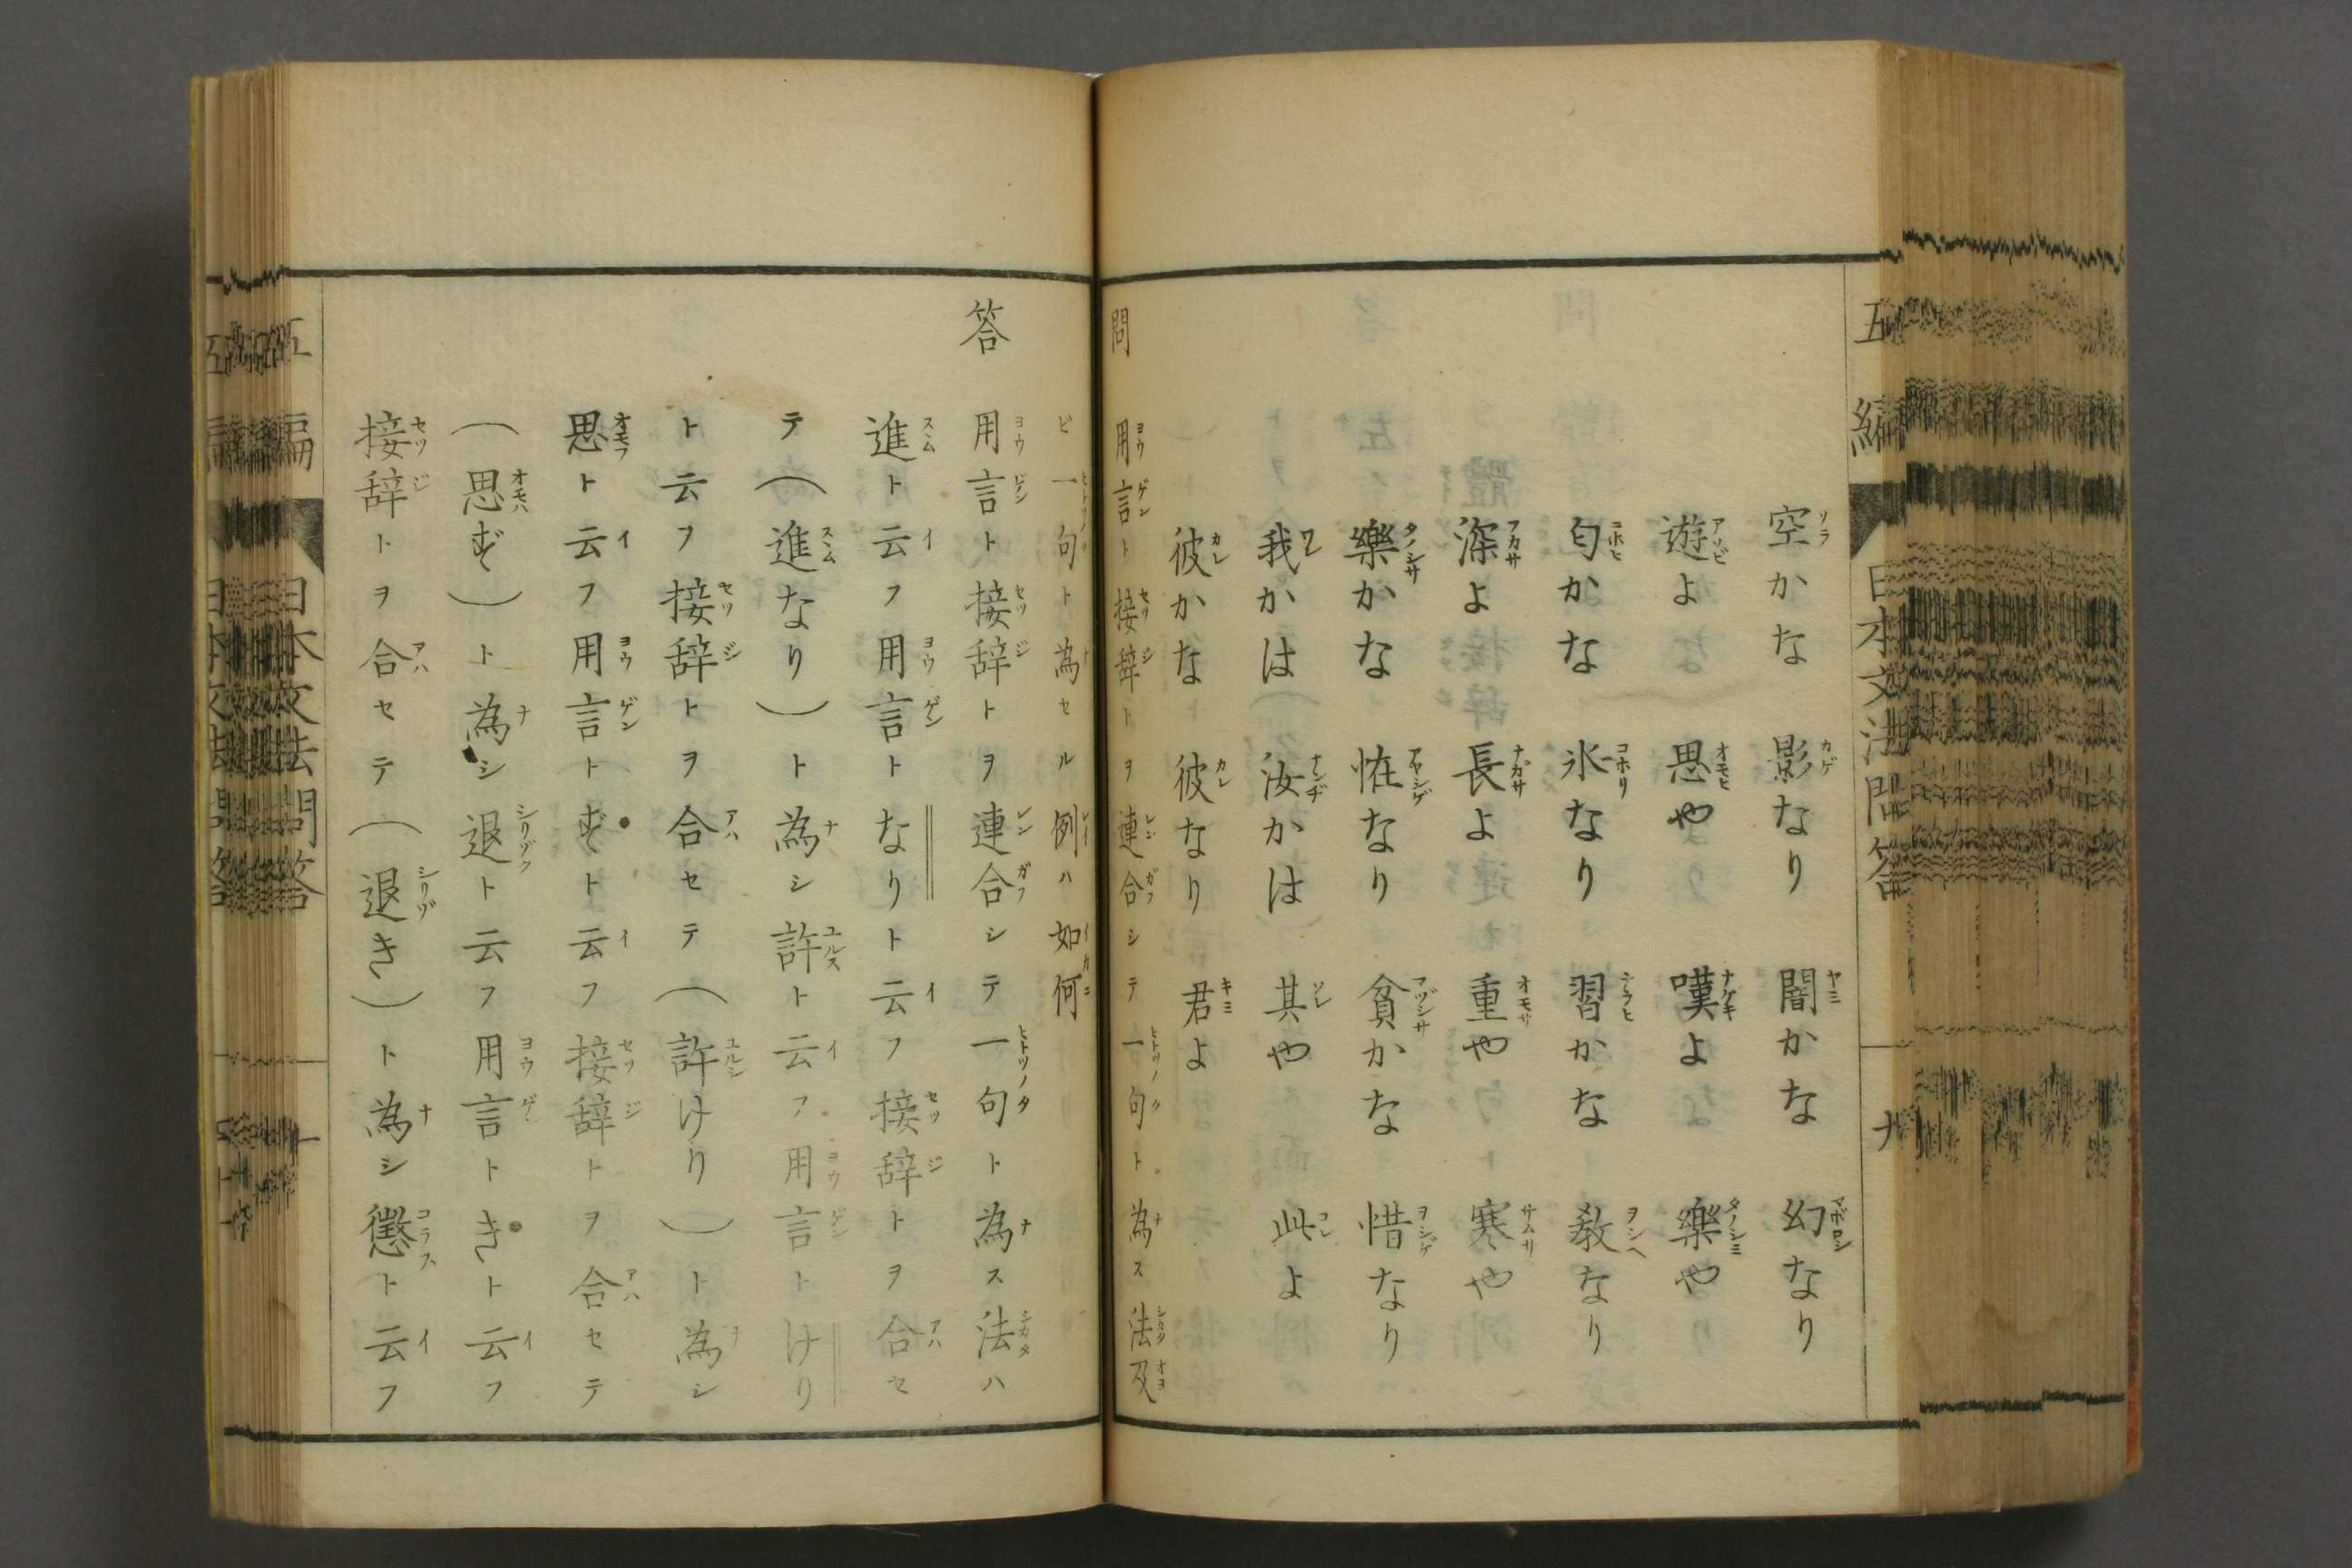 五編 日本文法問答
空かな 影なり 闇かな 幻なり
遊よ 思や 嘆よ 樂や
匂かな 氷なり 習かな 教なり
深よ 長よ 重や 寒や
樂かな 恠なり 貧かな 惜なり
我かは 汝かは 其や 此よ
彼かな 彼なり 君よ
問 用言ト接辞トヲ連合シテ一句ト為ス法及
ビ一句ト為セル例ハ如何
答 用言ト接辞トヲ連合シテ一句ト為ス法ハ
進ト云フ用言トなりト云フ接辞トヲ合セ
テ(進なり)ト為シ許ト云フ用言トけり
ト云フ接辞トヲ合セテ(許けり)ト為シ
思ト云フ用言トずト云フ接辞トヲ合セテ
(思ず)ト為シ退ト云フ用言トきト云フ
接辞トヲ合セテ(退き)ト為シ懲ト云フ
日本文法問答